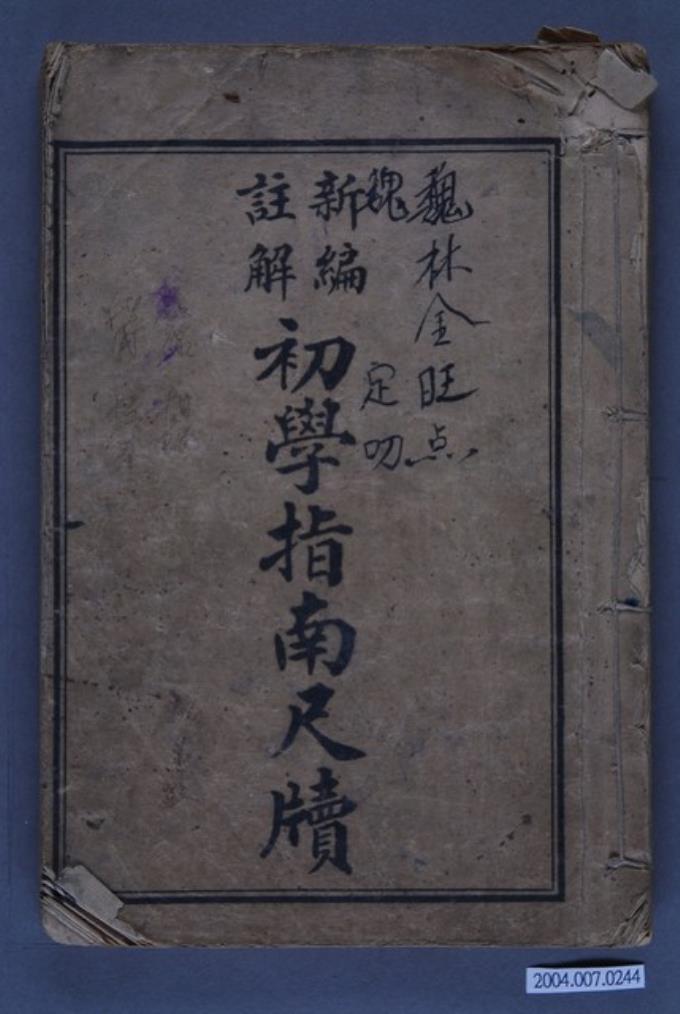 魏林金旺点
魏 定叨
新編
註解
初學指南尺牘
2004.007.0244